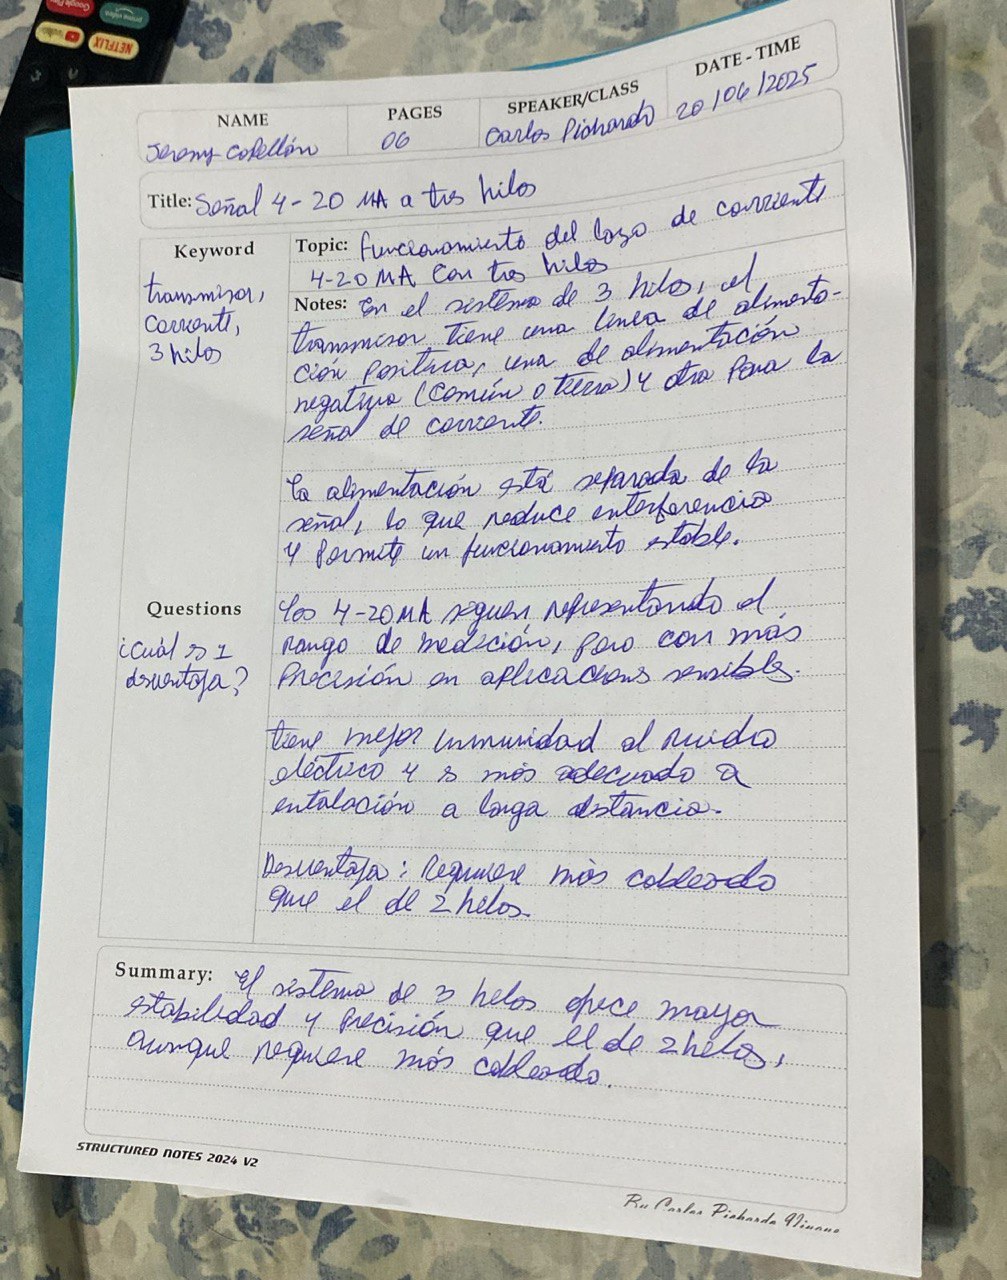 Google Play
prime video
YouTube
NETFLIX
NAME
PAGES
SPEAKER/CLASS
DATE - TIME
Jeremy
06
Carlos Pichardo
20/06/2025
Title: Señal 4-20 MA a tres hilos
Keyword
transmisor,
corriente,
3 hilos
Topic: Funcionamiento del lazo de corriente
4-20 MA con tres hilos
Notes: En el sistema de 3 hilos, el
transmisor tiene una linea de alimenta-
ción positiva, una de alimentación
negativa (común o tierra) y otra para la
señal de corriente.
La alimentación está separada de la
señal, lo que reduce interferencia
y permite un funcionamiento estable.
Questions
¿Cuál es 1
desventaja?
Los 4-20MA siguen representando el
rango de medición, pero con más
precisión en aplicaciones sensibles.
Tiene mejor inmunidad al ruido
eléctrico y es más adecuado a
entalación a larga distancia.
Desventaja: Requiere más cableado
que el de 2 hilos.
Summary: El sistema de 3 hilos ofrece mayor
estabilidad y precisión que el de 2 hilos,
aunque requiere más cableado.
STRUCTURED NOTES 2024 V2
Carlos Pichardo